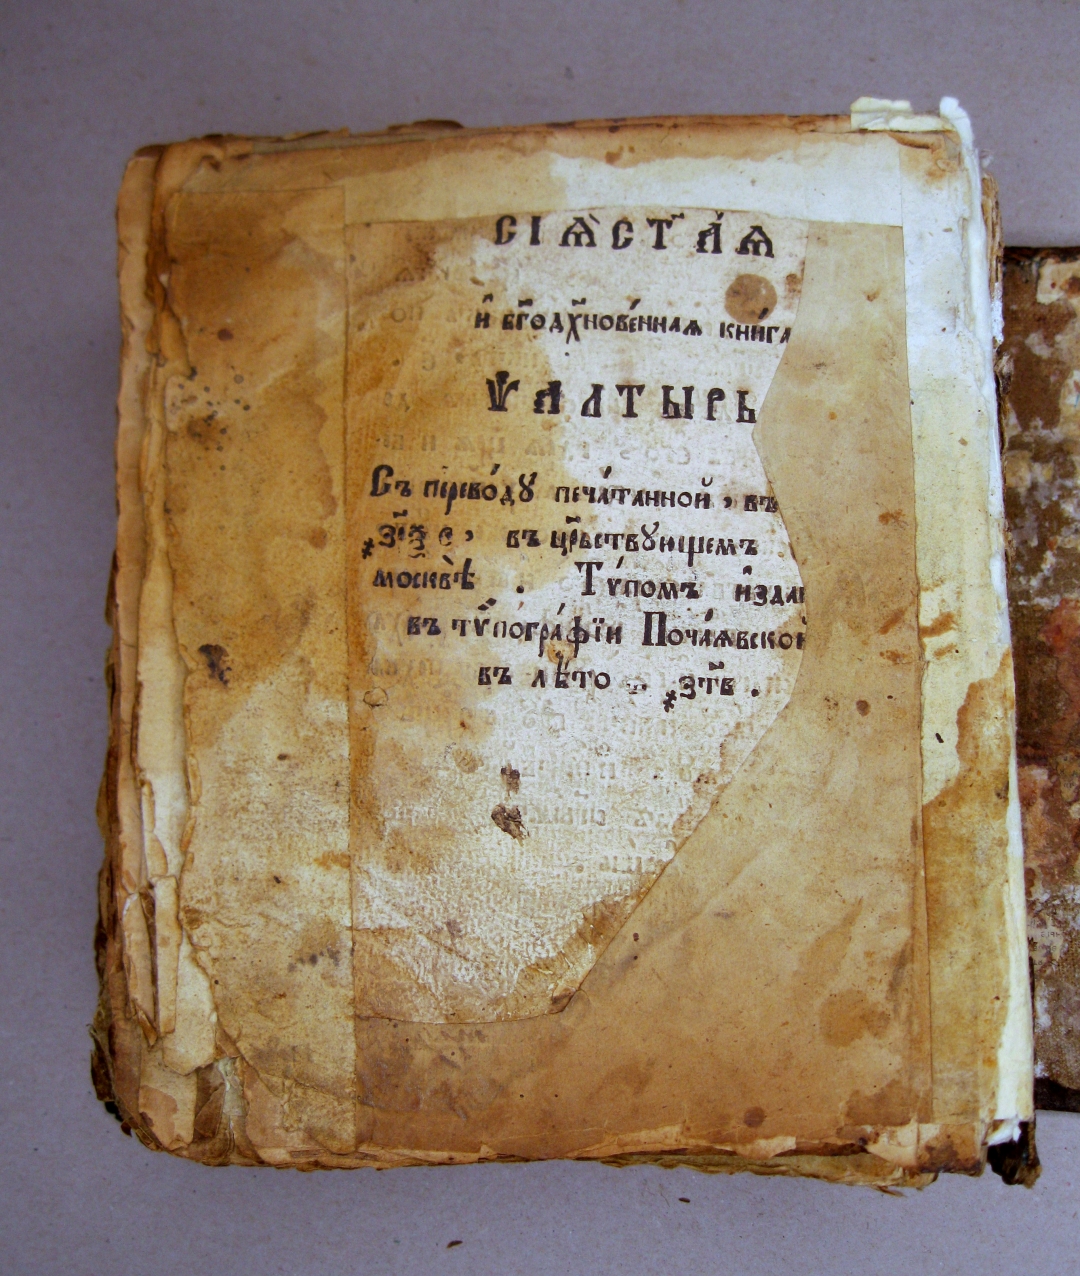 СІѦ҆ СТ҃АѦ
и҆ бг҃одх҃нове́ннаѧ кни́га
Ѱ А Л Т Ы Р Ь
Съ перево́дꙋ печа́танной , въ
҂зр҃ѯ е҃ , въ цр҃ьствꙋющемъ
москвѣ̀ . Тѵ́помъ и҆здан
въ тѵ̈погра́фїи Поча́ѧвской
въ лѣ́то .. ҂зт҃в .